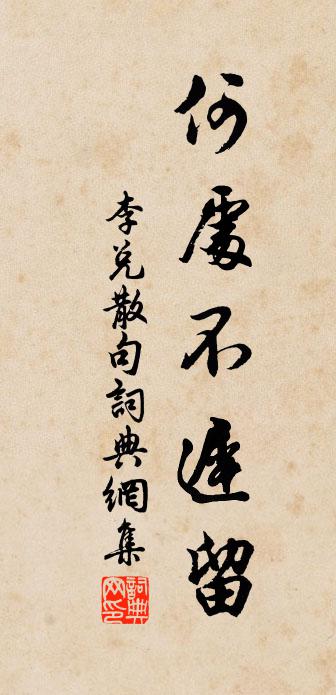 何處不遲留
李兌散句詞典網集
詞典網印